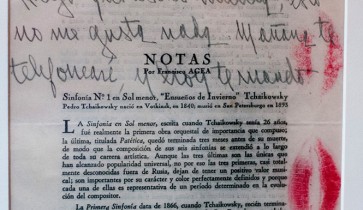 no me gusta nada. Mañana te
telefonearé,
NOTAS
Por Francisco AGEA
Sinfonía Nº 1 en Sol menor, "Ensueños de Invierno" Tchaikowsky
Pedro Tchaikowsky nació en Votkinsk, en 1840; murió en San Petersburgo en 1893
LA Sinfonía en Sol menor, escrita cuando Tchaikowsky tenía 26 años,
fué realmente la primera obra orquestal de importancia que compuso;
la última, titulada Patética, quedó terminada tres meses antes de su muerte,
de modo que la composición de sus seis sinfonías se extendió a lo largo
de toda su carrera artística. Aunque las tres últimas son las únicas que
han alcanzado popularidad universal, no por eso las tres primeras, casi total-
mente desconocidas fuera de Rusia, dejan de tener un positivo valor musi-
cal; son importantes por su carácter y color perfectamente definidos y porque
cada una de ellas es representativa de un período determinado en la evolu-
ción del compositor.
La Primera Sinfonía data de 1866, cuando Tchaikowsky,